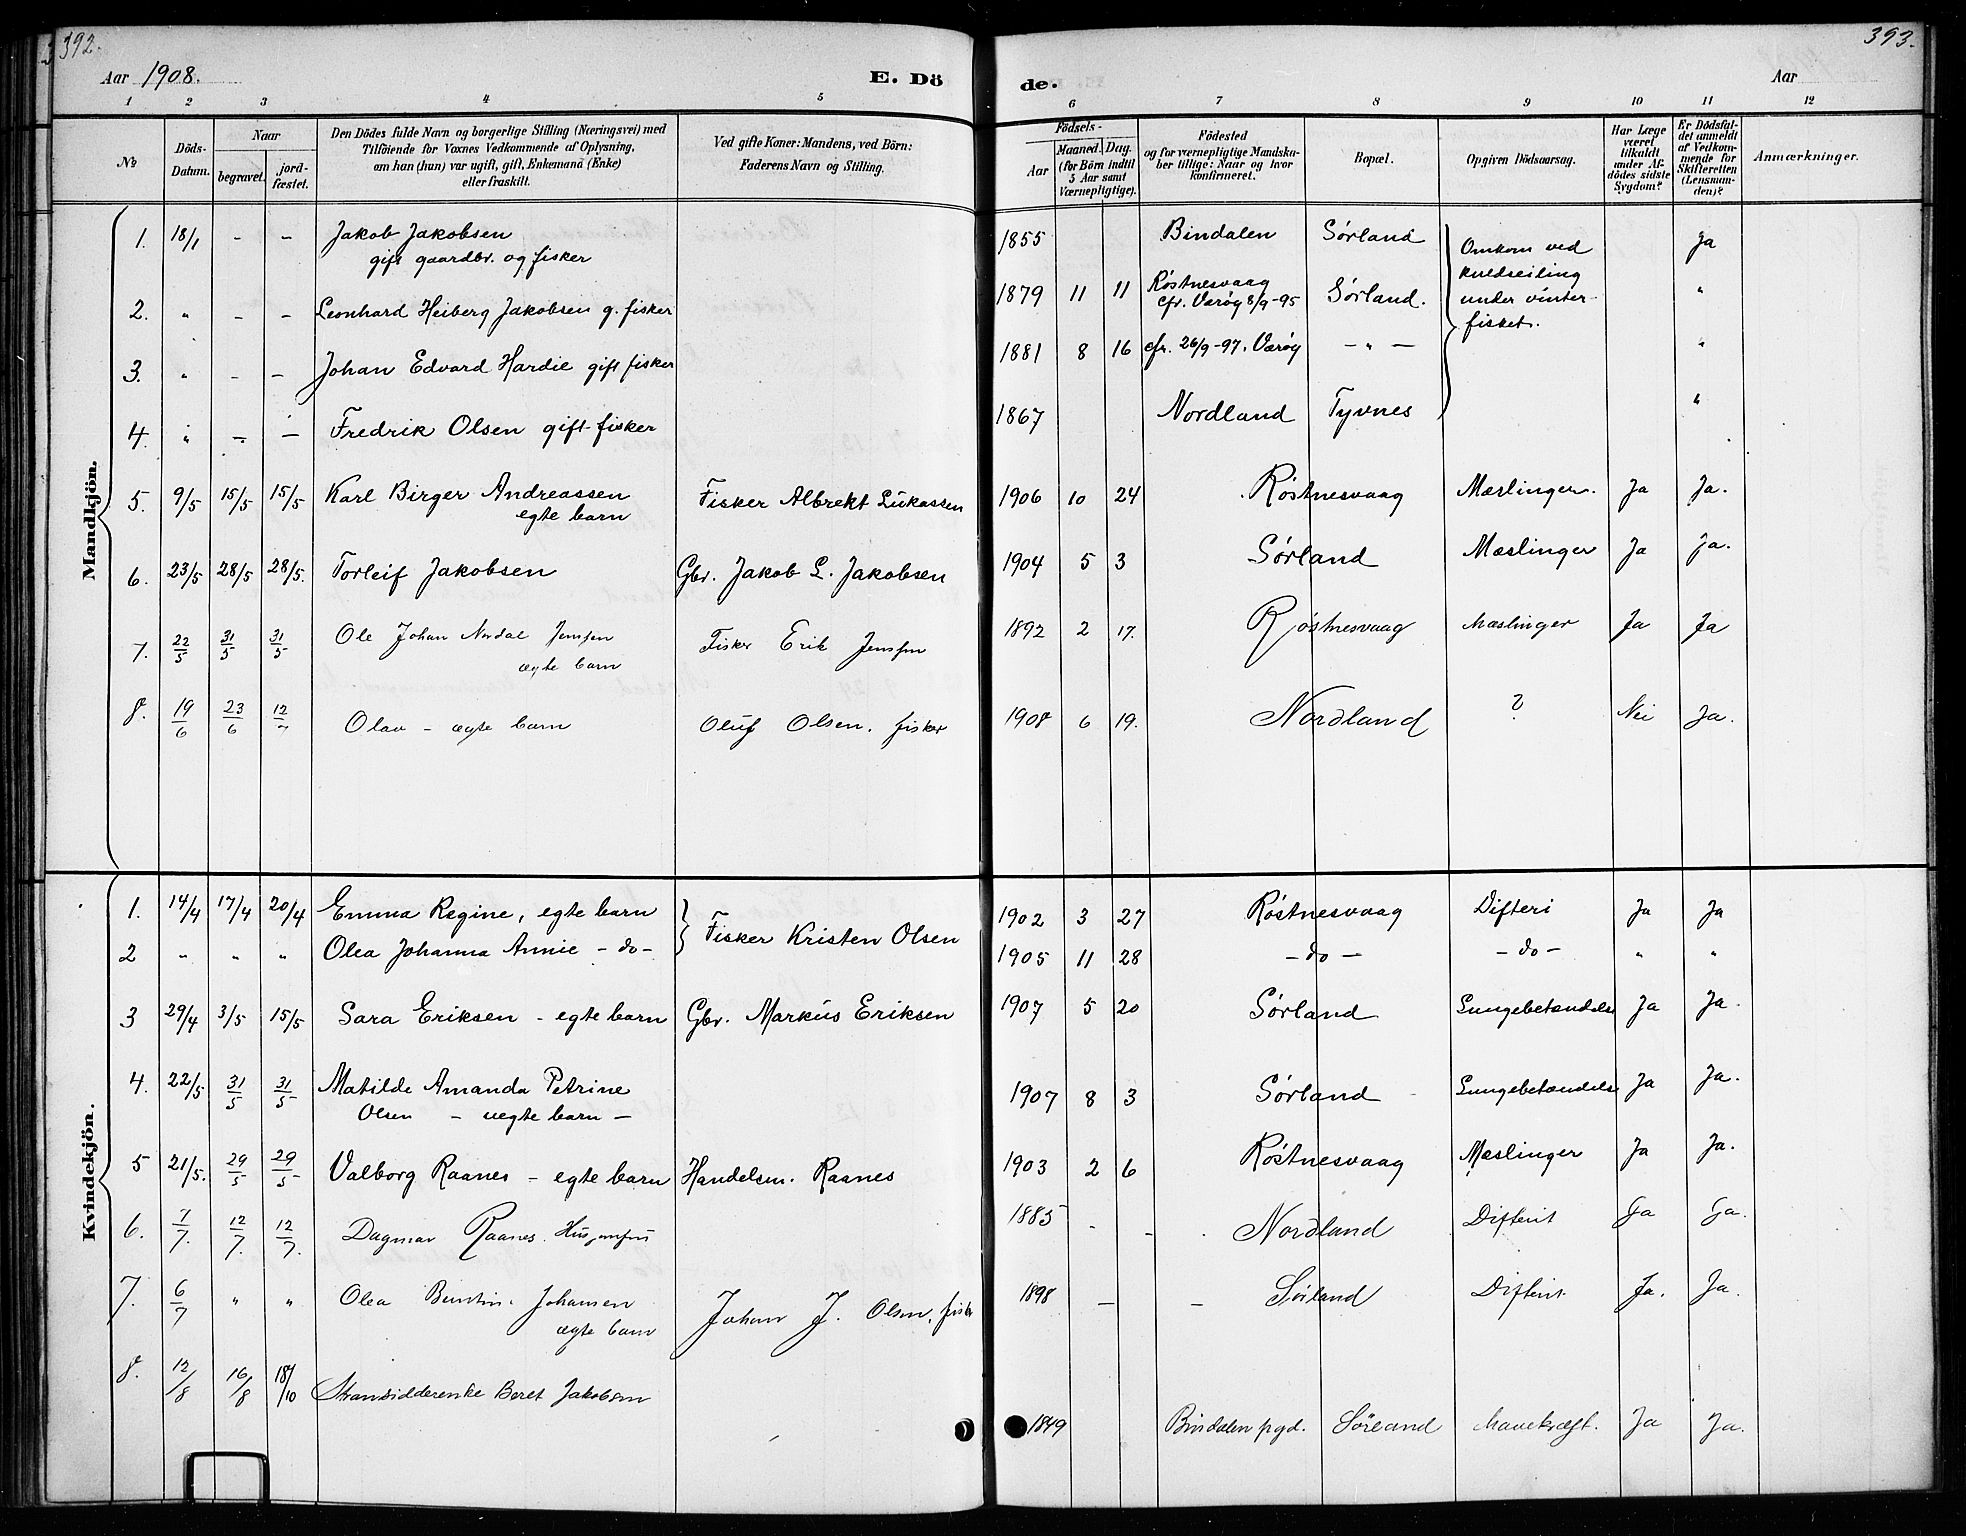 392.
393.
Aar 1908.
E. Dö
de.
Aar
1 2 3 4 5 6 7 8 9 10 11 12
No
Döds-Datum.
Naar
begravet.
jord-fæstet.
Den Dödes fulde Navn og borgerlige Stilling (Næringsvei) med
Tilföiende for Voxnes Vedkommende af Oplysning,
om han (hun) var ugift, gift, Enkemand (Enke)
eller fraskilt.
Ved gifte Koner: Mandens, ved Börn:
Faderens Navn og Stilling.
Födsels-
Aar
Maaned. Dag.
(for Börn indtil
5 Aar samt
Værnepligtige).
Födested
og for værnepligtige Mandska-
ber tillige: Naar og hvor
konfirmeret.
Bopæl.
Opgiven Dödsaarsag.
Har Læge
været
tilkaldt
under Af-
dödes sidste
Sygdom?
Er Dödsfal-
det anmeldt
af Vedkom-
mende for
Skifteretten
(Lensman-
den)?
Anmærkninger.
Mandkjön.
1. 18/1 - - Jakob Jakobsen 1855 Bindalen Sørland Omkom ved Ja
gift gaardbr. og fisker kuldseiling
2. " - - Leonhard Heiberg Jakobsen g. fisker 1879 11 11 Røstnesvaag Sørland. under vinter- "
cfr. Værøy 8/9-95 fisket.
3. " - - Johan Edvard Hardie gift fisker 1881 8 16 cfr. 26/9-97. Værøy - " - "
4. " - - Fredrik Olsen gift fisker 1867 Nordland Tyvnes "
5. 9/5 15/5 15/5 Karl Birger Andreassen Fisker Albrekt Lukassen 1906 10 24 Røstnesvaag Mæslinger. Ja Ja.
egte barn
6. 23/5 28/5 28/5. Torleif Jakobsen Gbr. Jakob L. Jakobsen 1904 5 3 Sørland Mæslinger Ja Ja.
7. 22/5 31/5 31/5 Ole Johan Nordal Jenssen Fisker Erik Jenssen 1892 2 17. Røstnesvaag Mæslinger Ja Ja
ægte barn
8. 19/6 23/6 12/7 Olav - ægte barn Oluf Olsen, fisker 1908 6 19. Nordland ? Nei Ja.
Kvindekjön.
1. 14/4 17/4 20/4 Emma Regine, egte barn Fisker Kristen Olsen 1902 3 27 Røstnesvaag Difteri Ja Ja
2 " " " Olea Johanna Annie - do - 1905 11 28 - do - - do - " "
3 29/4 3/5 15/5 Sara Eriksen - egte barn Gbr. Markus Eriksen 1907 5 20 Sørland Lungebetændelse Ja Ja.
4. 22/5 31/5 31/5 Matilde Amanda Petrine 1907 8 3 Sørland Lungebetændelse Ja Ja.
Olsen - uegte barn -
5 21/5. 29/5 29/5 Valborg Raanes - egte barn Handelsm. Raanes 1903 2 6 Røstnesvaag Mæslinger Ja Ja.
6. 7/7. 12/7. 12/7. Dagmar Raanes. Husjomfru 1885 - - Nordland Difterit Ja Ja.
7. 6/7 " " Olea Johansen Johan J. Olsen, fisk 1898 - - Sørland Difterit Ja. Ja.
ægte barn
8. 12/8 16/8 18/10 Strandsidderenke Beret Jakobsen 1849 Bindalen pgd. Sörland Mavekræft. Ja Ja.